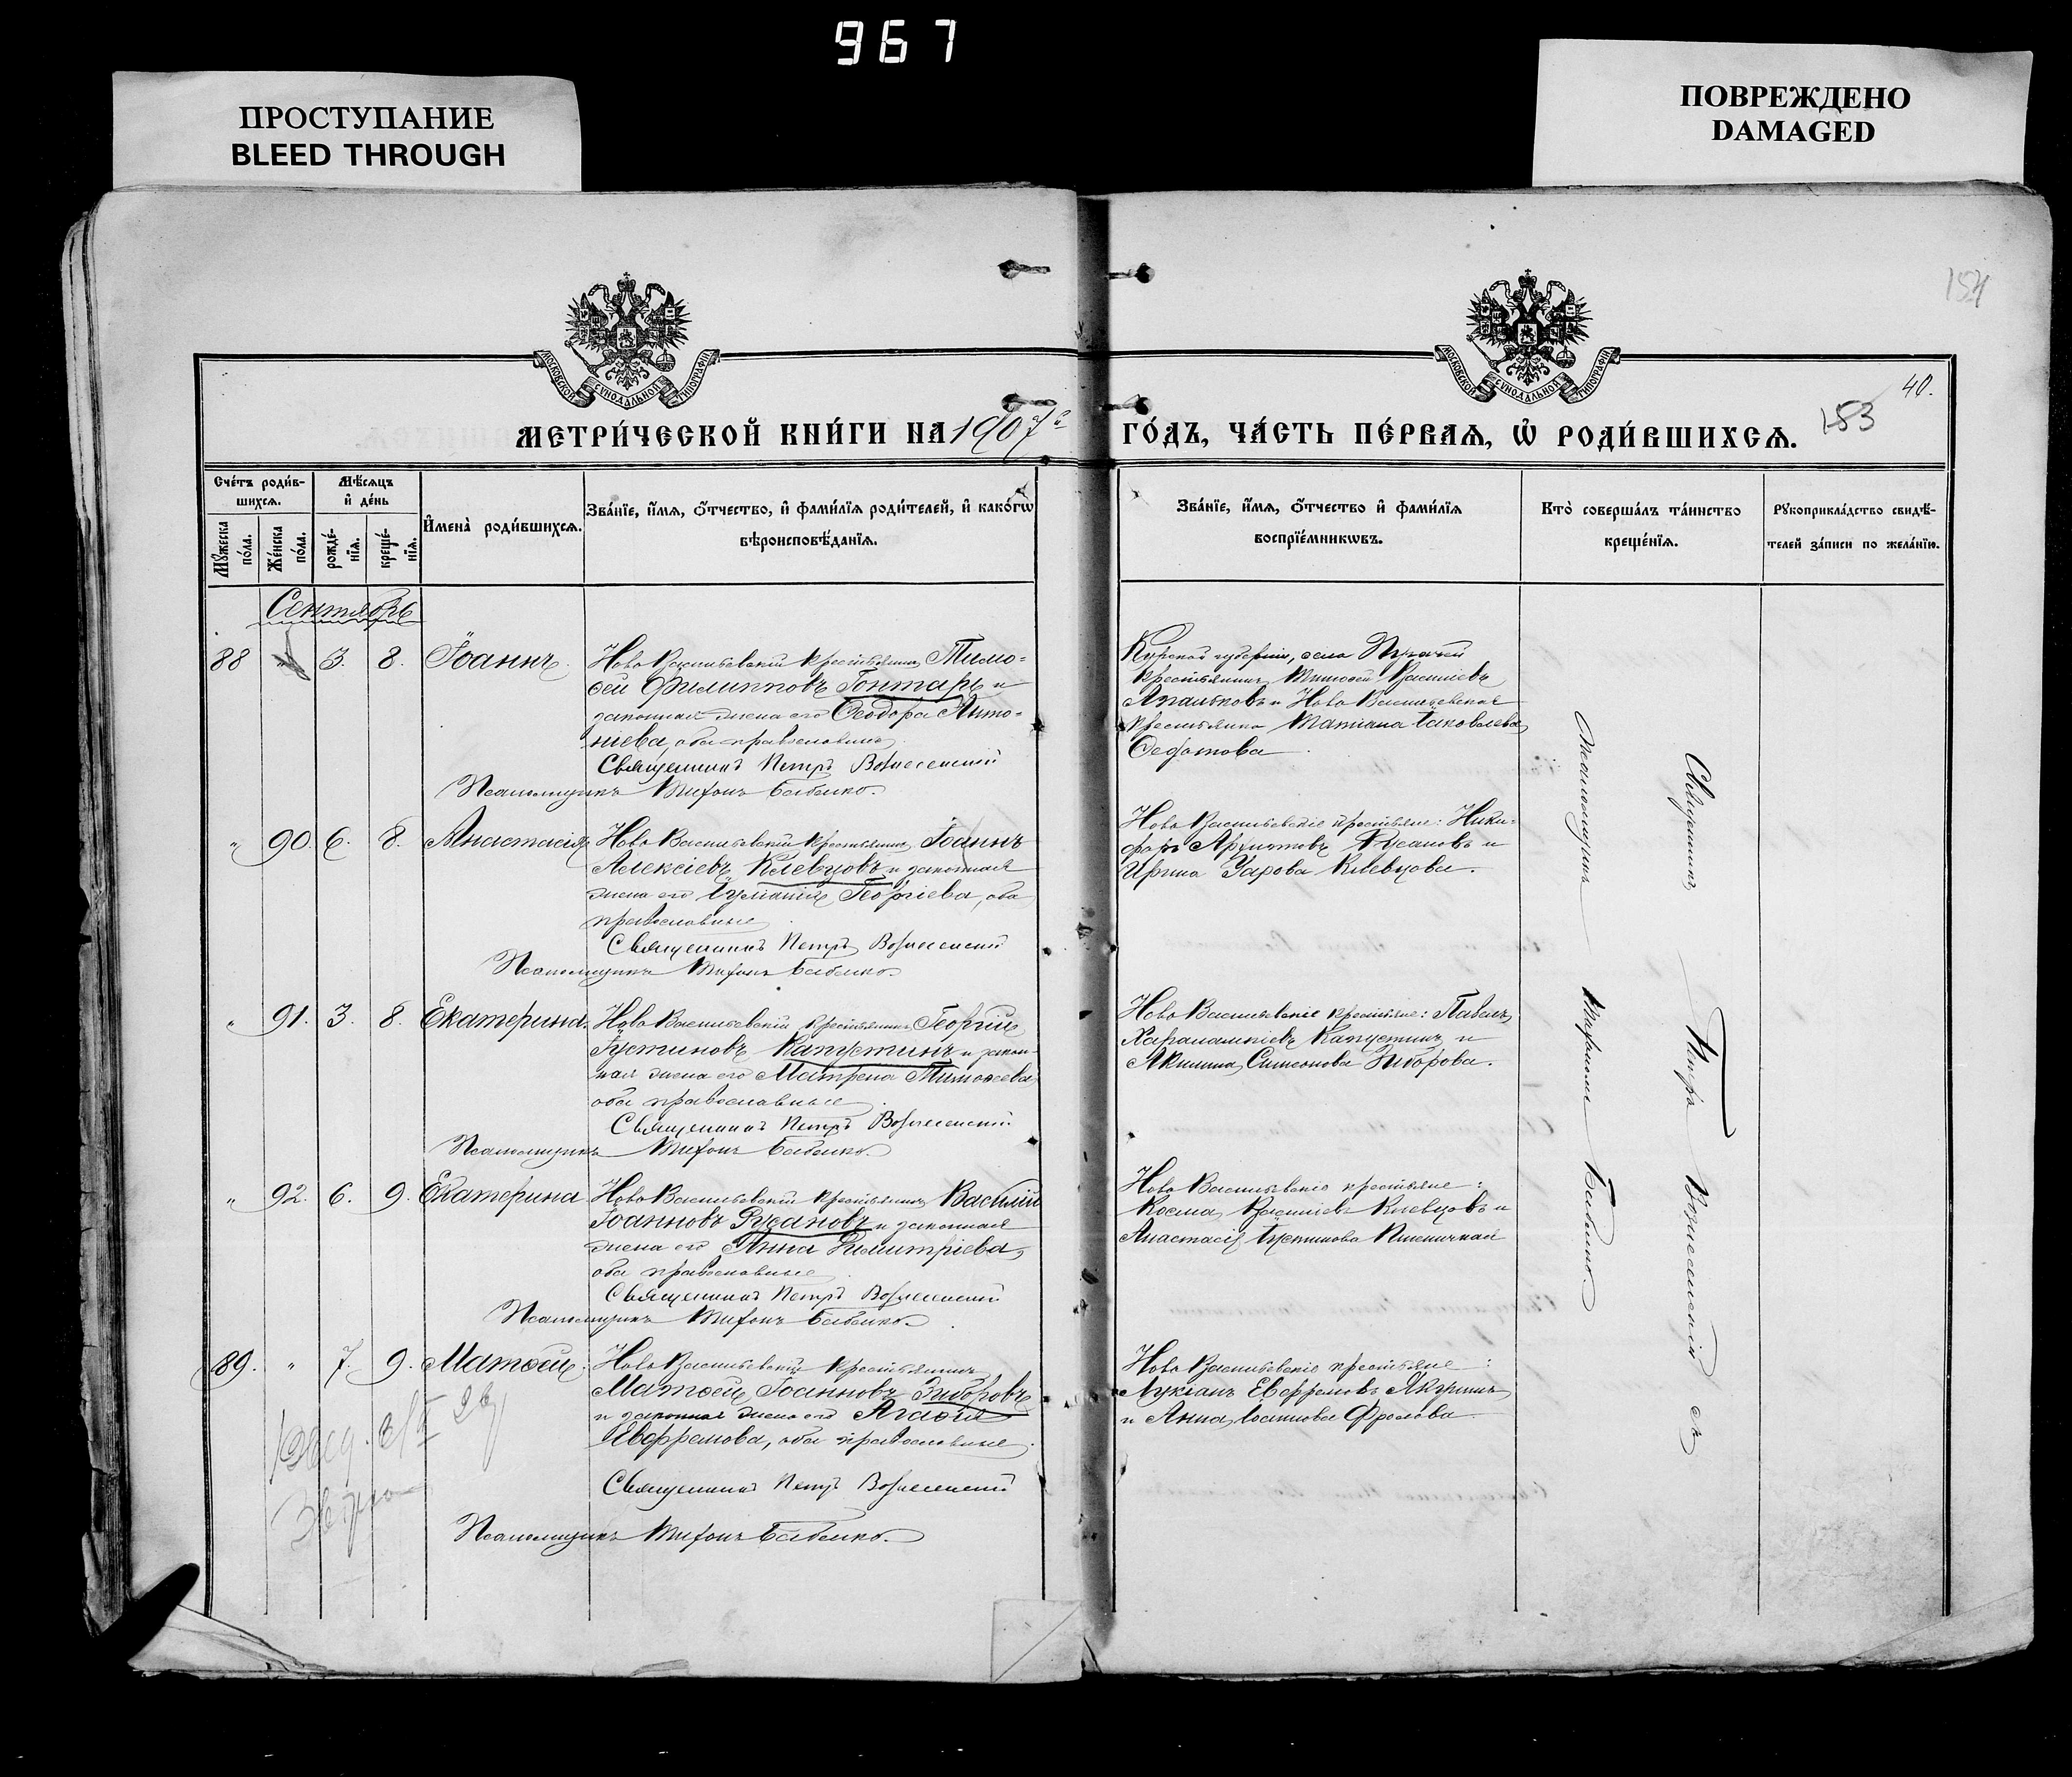 967
ПРОСТУПАНИЕ
BLEED THROUGH
ПОВРЕЖДЕНО
DAMAGED
МОСКОВСКОЙ СУНОДАЛЬНОЙ ТИПОГРАФІИ
МОСКОВСКОЙ СУНОДАЛЬНОЙ ТИПОГРАФІИ
154
40.
153
МЕТРИ́ЧЕСКОЙ КНИ́ГИ НА 1907 ГО́ДЪ, ЧА́СТЬ ПЕ́РВАѦ, Ѡ҆ РОДИ́ВШИХСѦ.
Сче́тъ роди́в-
шихсѧ.
Мѣ́сѧцъ
и҆ де́нь
Мꙋ́жеска
по́ла.
Же́нска
по́ла.
рожде́-
нїѧ.
креще́-
нїѧ.
И҆мена̀ роди́вшихсѧ.
Зва́нїе, и҆́мѧ, ѻ҆́тчество, и҆ фами́лїѧ роди́телей, и҆ како́гѡ
вѣроисповѣ́данїѧ.
Зва́нїе, и҆́мѧ, ѻ҆́тчество и҆ фами́лїѧ
воспрїе́мникѡвъ.
Кто̀ соверша́лъ та́инство
креще́нїѧ.
Рꙋкоприкла́дство свидѣ́-
телей за́писи по жела́нїю.
Сентябрь
88 " 3. 8. Іоаннъ.
Ново Васильевскій крестьянинъ Тимо-
ѳей Филипповъ Гонтарь и
законная жена его Ѳеодора Анто-
ніева, оба православные
Священникъ Петръ Вознесенскій
Псаломщикъ Тихонъ Бабенко.
Курской губерніи, села
крестьянинъ Тимоѳей Васильевъ
Апальковъ и Ново Васильевская
крестьянка Татіана Іаковлева
Ѳедотова
" 90. 6. 8. Анастасія
Ново Васильевскій крестьянинъ Іоаннъ
Алексіевъ Клевцовъ и законная
жена его Іуліанія Георгіева, оба
православные
Священникъ Петръ Вознесенскій
Псаломщикъ Тихонъ Бабенко
Ново Васильевскіе крестьяне: Ники-
форъ Русановъ и
Ирина Клевцова.
" 91. 3. 8. Екатерина.
Ново Васильевскій крестьянинъ Георгій
Іустиновъ Капустинъ и закон-
ная жена его Матрена Тимоѳеева
оба православные
Священникъ Петръ Вознесенскій
Псаломщикъ Тихонъ Бабенко.
Ново Васильевскіе крестьяне: Павелъ
Харалампіевъ Капустинъ и
Акилина Симеонова Зиборова.
" 92. 6. 9. Екатерина
Ново Васильевскій крестьянинъ Василій
Іоанновъ Русановъ и законная
жена его Анна Димитріева,
оба православные
Священникъ Петръ Вознесенскій
Псаломщикъ Тихонъ Бабенко.
Ново Васильевскіе крестьяне:
Косма Васильевъ Клевцовъ и
Анастасія Іустинова Пшеничная
89. " 7. 9. Матѳей.
Ново Васильевскій крестьянинъ
Матѳей Іоанновъ Зиборовъ
и законная жена его Агаѳія
Евфремова, оба православные.
Священникъ Петръ Вознесенскій
Псаломщикъ Тихонъ Бабенко.
Ново Васильевскіе крестьяне:
Лукіанъ Евфремовъ Якунинъ
и Анна Іоаннова Фролова
Священникъ Петръ Вознесенскій съ
Псаломщикомъ Тихономъ Бабенко